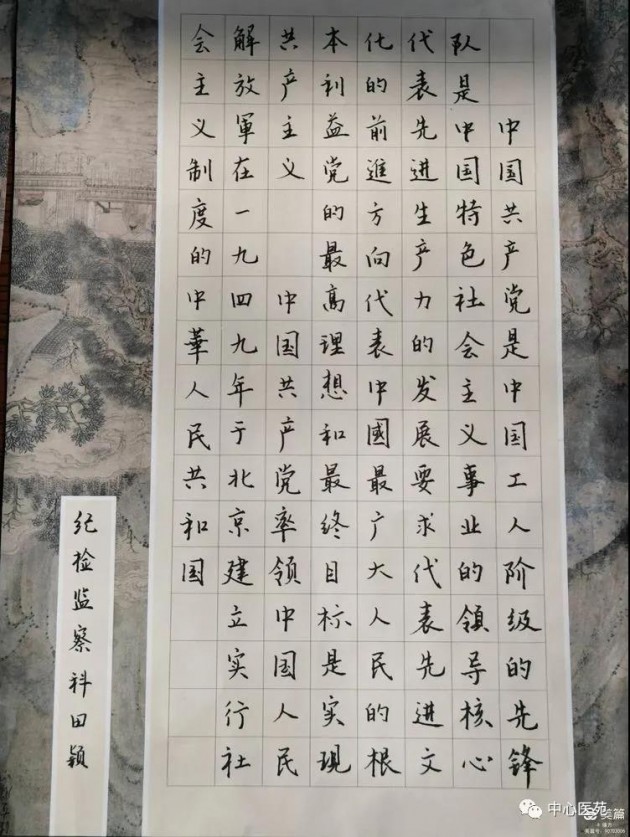 中国共产党是中国工人阶级的先锋
队是中国特色社会主义事业的领导核心
代表先进生产力的发展要求代表先进文
化的前進方向代表中國最广大人民的根
本利益党的最高理想和最终目标是实现
共产主义 中国共产党率领中国人民
解放軍在一九四九年于北京建立实行社
会主义制度的中華人民共和国
纪检监察科田颖
中心医苑
美篇